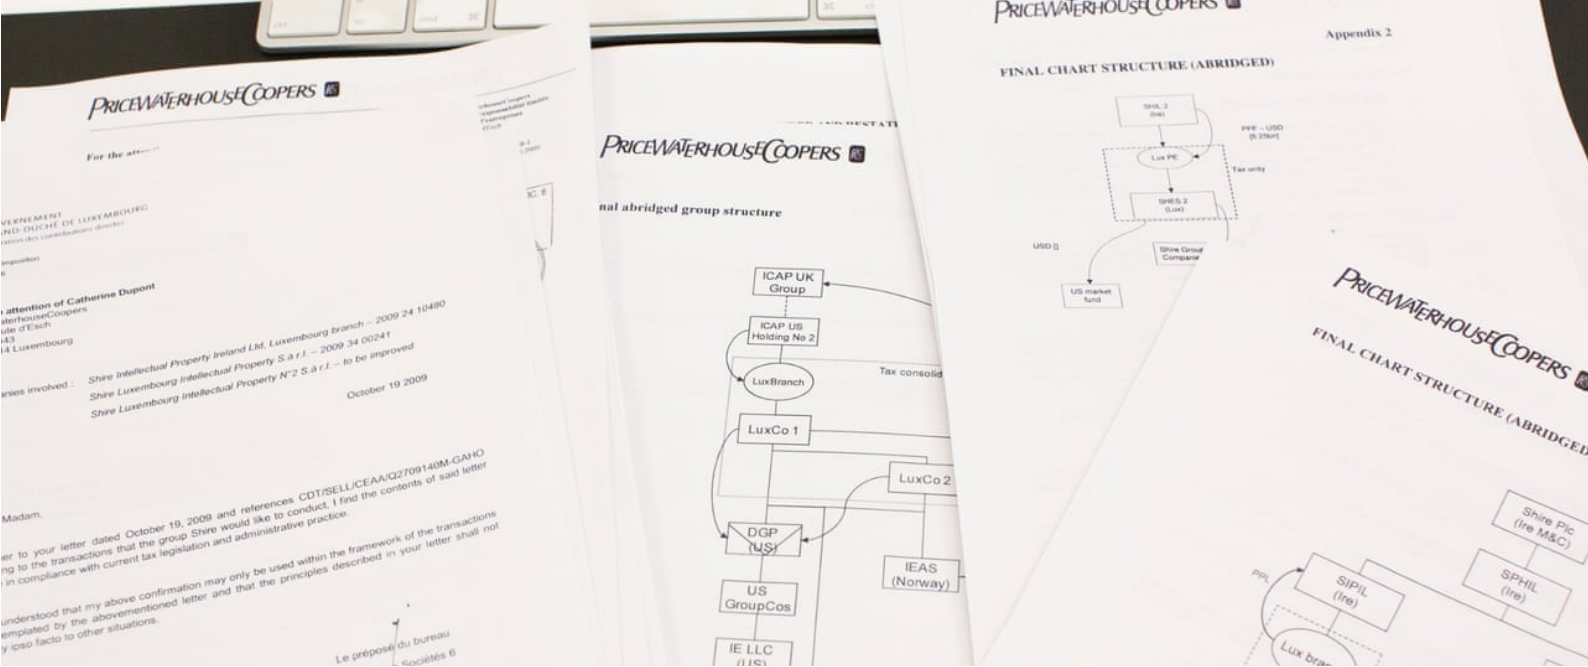 PRICEWATERHOUSECOOPERS
For the
VERNEMENT
AND-DUCHÉ DE LUXEMBOURG
ration des contributions directes
imposition
attention of Catherine Dupont
aterhouseCoopers
ute d'Esch
L4 Luxembourg
nies involved :
Shire Intellectual Property Ireland Ltd, Luxembourg branch – 2009 24 10480
Shire Luxembourg Intellectual Property S.à r.l. – 2009 34 00241
Shire Luxembourg Intellectual Property N°2 S.à r.l. – to be improved
October 19 2009
Madam,
er to your letter dated October 19, 2009 and references CDT/SELL/CEAA/Q2709140M-GAHO
ng to the transactions that the group Shire would like to conduct, I find the contents of said letter
in compliance with current tax legislation and administrative practice.
understood that my above confirmation may only be used within the framework of the transactions
emplated by the abovementioned letter and that the principles described in your letter shall not
y ipso facto to other situations.
Le préposé du bureau
Sociétés 6
PRICEWATERHOUSECOOPERS
nal abridged group structure
ICAP UK
Group
ICAP US
Holding No 2
LuxBranch
Tax consolid
LuxCo 1
LuxCo 2
DGP
(US)
IEAS
(Norway)
US
GroupCos
IE LLC
(US)
PRICEWATERHOUSECOOPERS
Appendix 2
FINAL CHART STRUCTURE (ABRIDGED)
SHIL 2
(Ire)
PPF – USD
Lux PE
Tax unity
SHES 2
(Lux)
USD []
Shire Group
Companie
US market
fund
PRICEWATERHOUSECOOPERS
FINAL CHART STRUCTURE (ABRIDGED
Shire Plc
(Ire M&C)
PPL
SIPIL
(Ire)
SPHIL
(Ire)
Lux bran